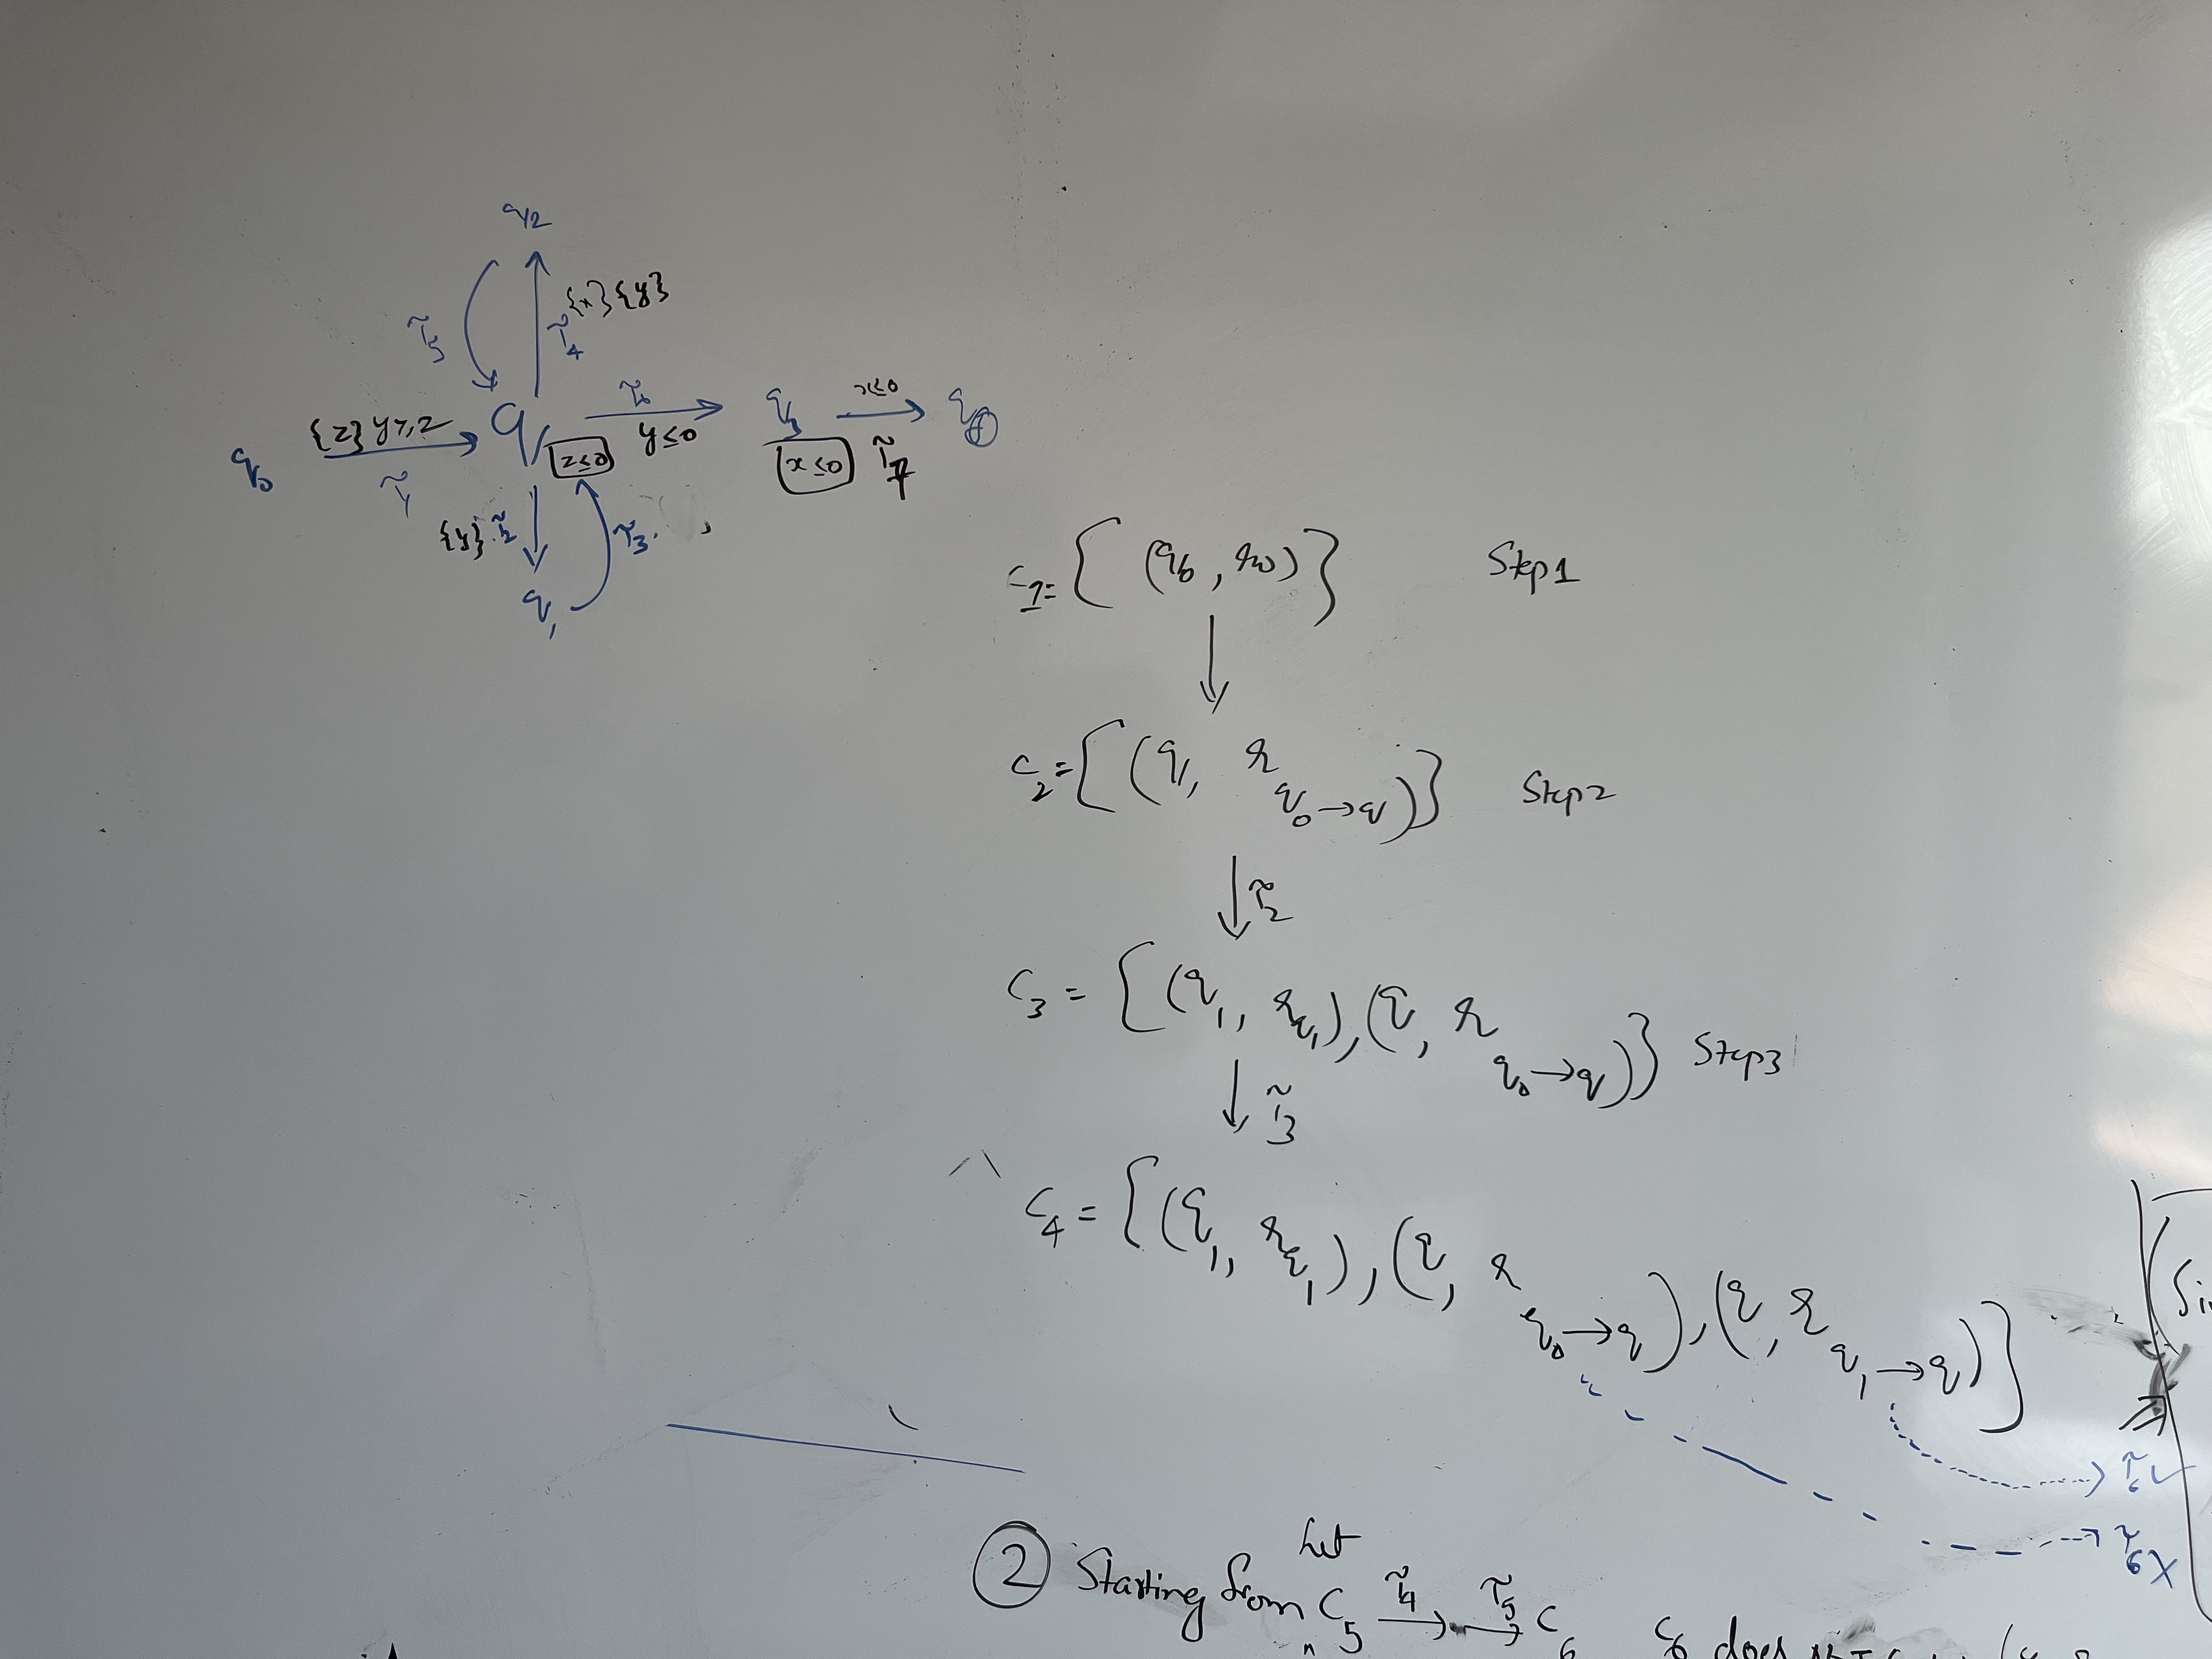 q2
{x} {y}
τ5 τ4
{z} y≥2 q τ6 q3 x≤0 qf
q0 z≤0 y≤0 x≤0 τ7
τ1
{y} τ2 τ3
q1
C1 = { (q0, r0) } Step1
C2 = { (q, r q0→q) } Step2
↓ τ2
C3 = { (q1, r q1), (q, r q0→q) } Step3
↓ τ3
C4 = { (q1, r q1), (q, r q0→q), (q, r q1→q) }
τ6 ✓
τ6 X
② Starting from Let C5 τ4→ τ5→ C6 C6 does